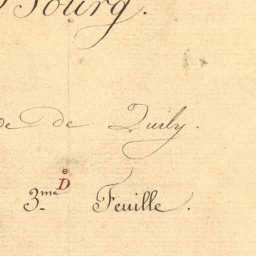 Bourg.
de de Quily.
D
3.me Feuille.